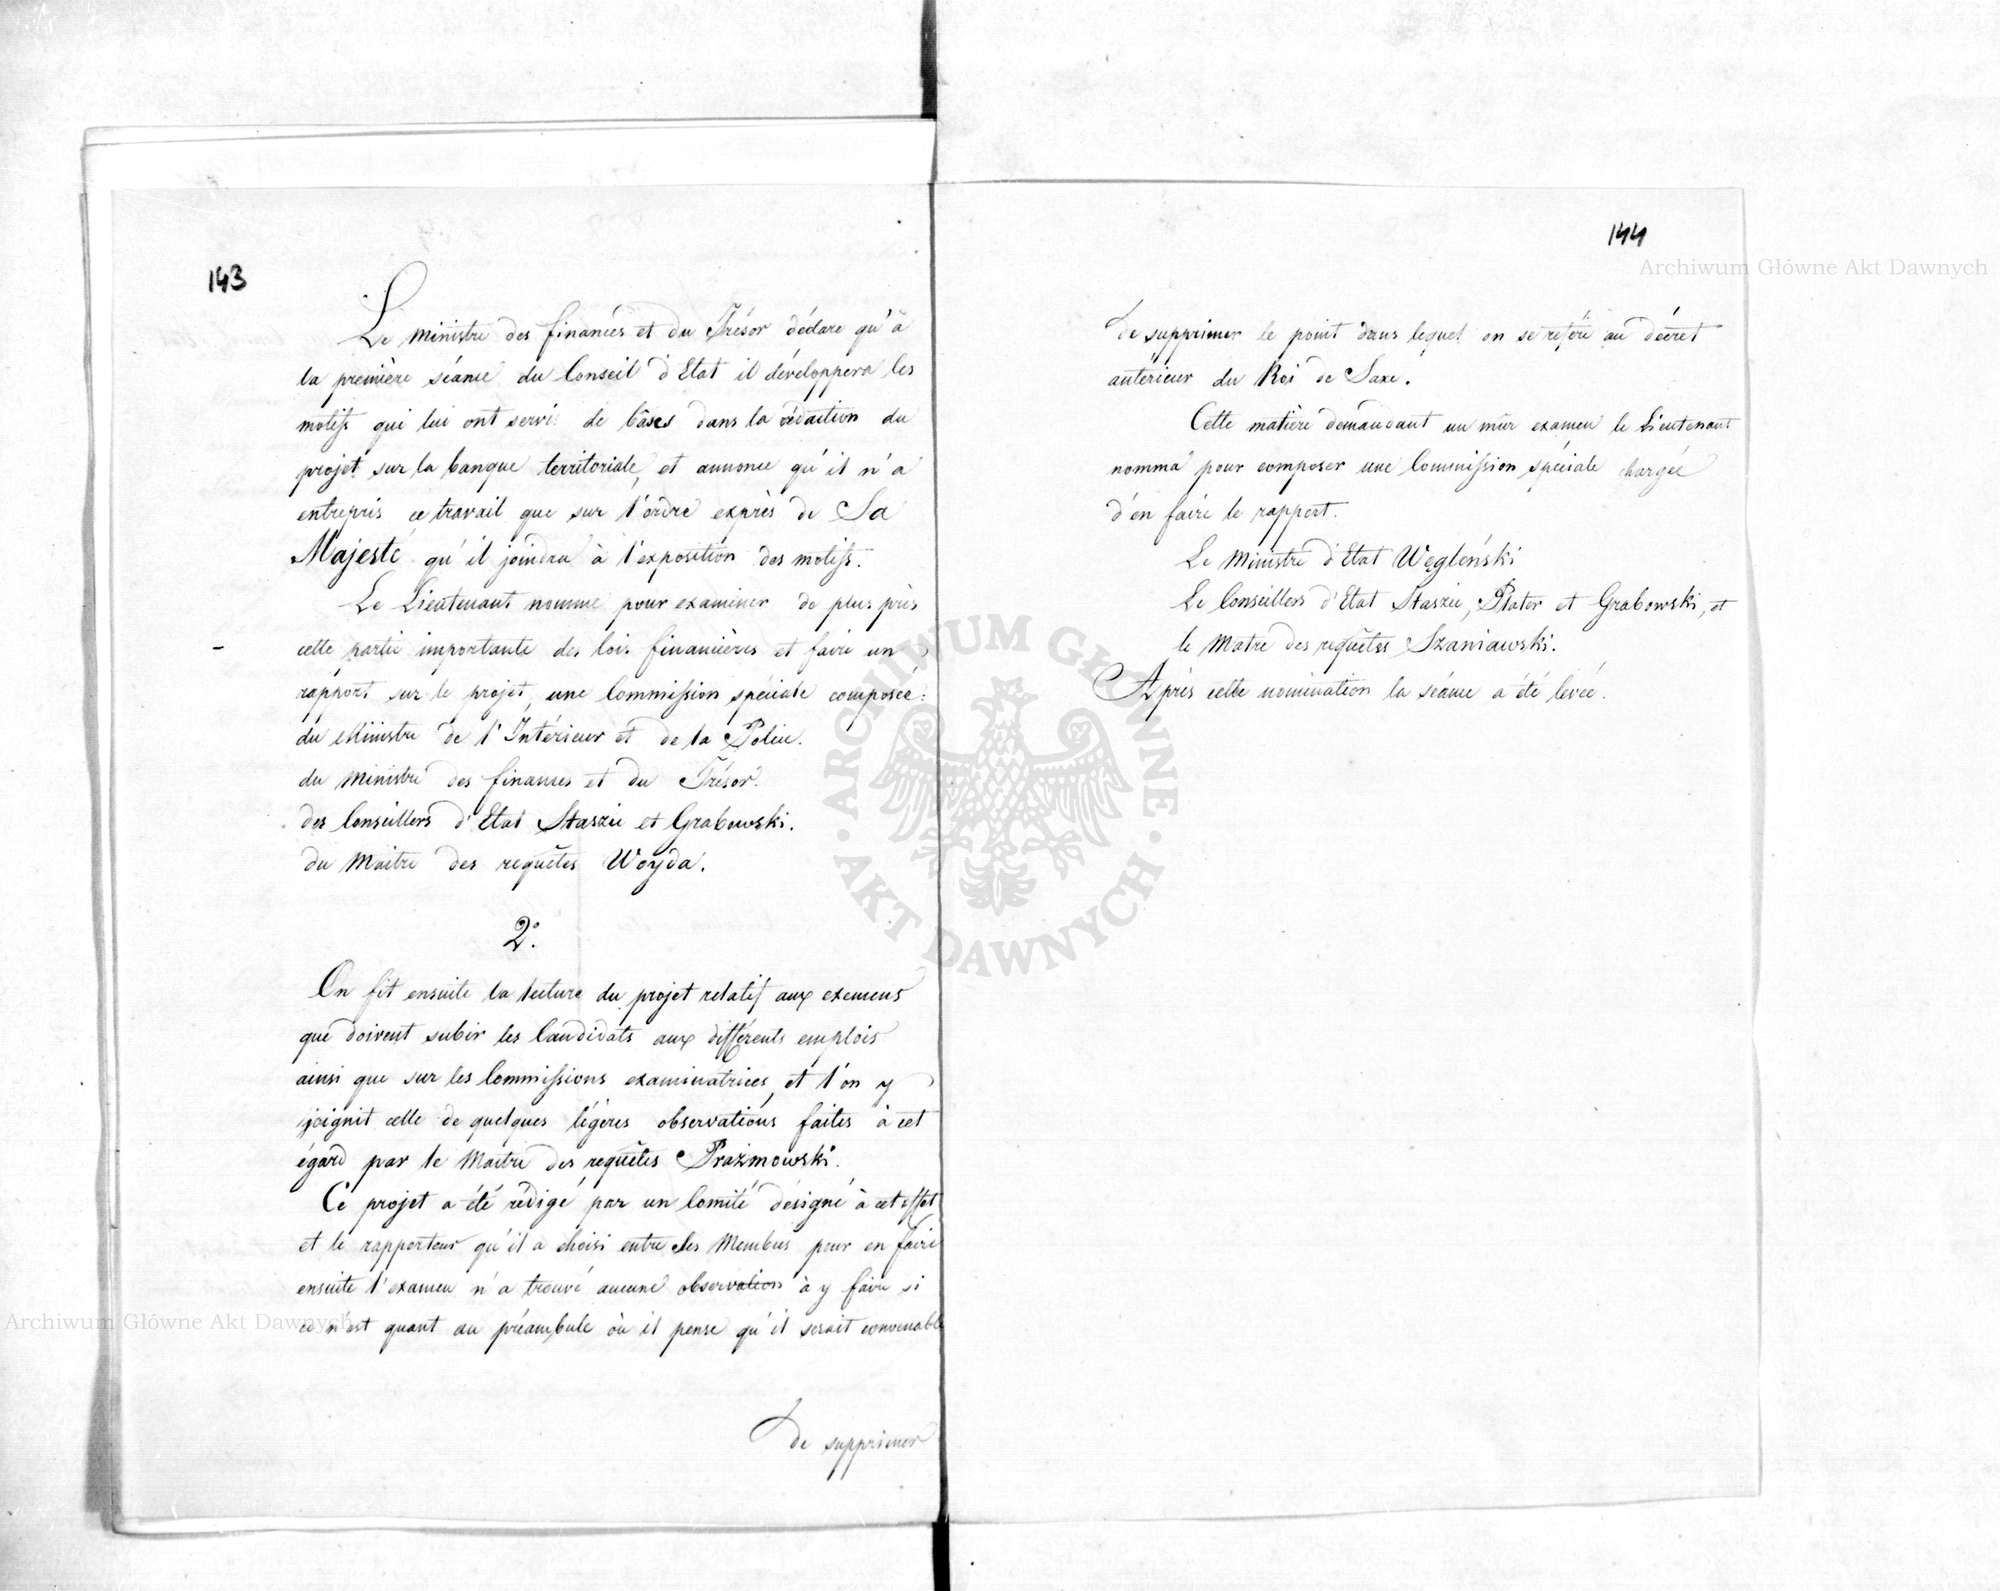 143
Le Ministre des finances et du Trésor déclare qu'à
la première séance du Conseil d'Etat il développera les
motifs qui lui ont servi de bâses dans la rédaction du
projet sur la banque territoriale, et annonce qu'il n'a
entrepris ce travail que sur l'ordre exprès de Sa
Majesté qu'il joindra à l'exposition des motifs.
Le Lieutenant nomme pour examiner de plus près
cette partie importante des lois financières et faire un
rapport sur le projet, une Commission spéciale composée:
du Ministre de l'Intérieur et de la Police.
du Ministre des finances et du Trésor.
des Conseillers d'Etat Staszic et Grabowski.
du Maitre des requêtes Woyda.
2°.
On fit ensuite la lecture du projet relatif aux examens
que doivent subir les Candidats aux différents emplois
ainsi que sur les Commissions examinatrices, et l'on y
joignit celle de quelques légères observations faites à cet
égard par le Maitre des requêtes Prażmowski.
Ce projet a été rédigé par un Comité désigné à cet effet
et le rapporteur qu'il a choisi entre ses Membres pour en faire
ensuite l'examen n'a trouvé aucune observation à y faire si
ce n'est quant au préambule où il pense qu'il serait convenable
de supprimer
144
de supprimer le point dans lequel on se réfère au décret
antérieur du Roi de Saxe.
Cette matière demandant un mûr examen le Lieutenant
nomma pour composer une Commission spéciale chargée
d'en faire le rapport.
Le Ministre d'Etat Węgleński
Le Conseillers d'Etat Staszic, Plater et Grabowski, et
le Matre des requêtes Szaniawski.
Après cette nomination la séance a été levée.
Archiwum Główne Akt Dawnych
Archiwum Główne Akt Dawnych
ARCHIWUM GŁÓWNE
AKT DAWNYCH